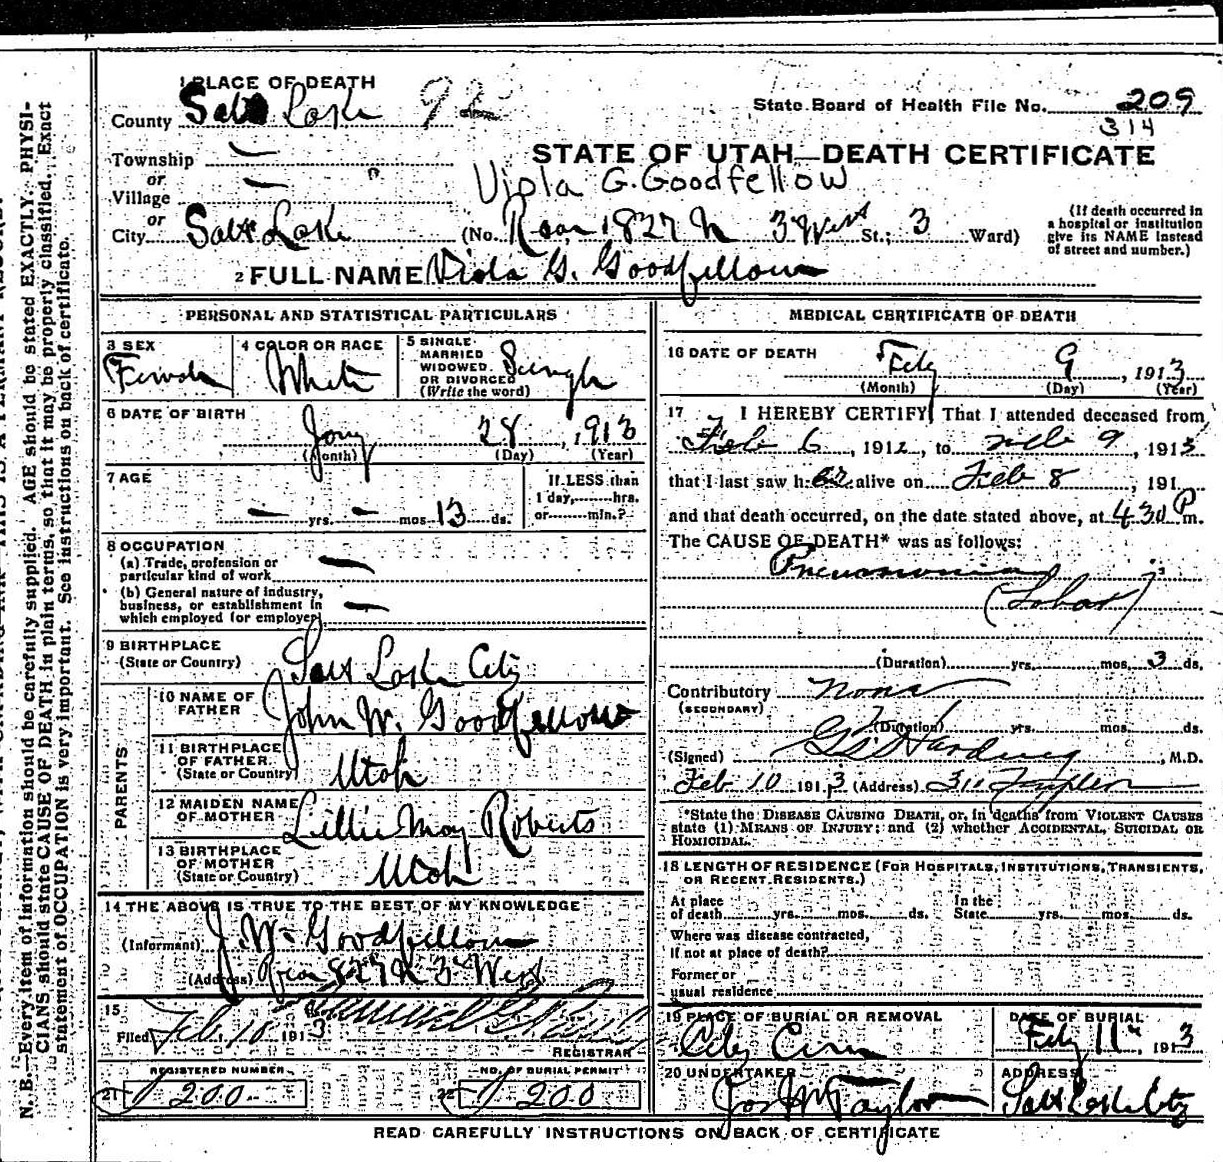 1 PLACE OF DEATH
County Salt Lake 92
State Board of Health File No. 209
314
Township —
or
Village —
or
STATE OF UTAH—DEATH CERTIFICATE
Viola G. Goodfellow
City Salt Lake (No. Rear 1827 N 3 West St.; 3 Ward)
(If death occurred in
a hospital or institution
give its NAME instead
of street and number.)
2 FULL NAME Viola G. Goodfellow
PERSONAL AND STATISTICAL PARTICULARS
3 SEX
Female
4 COLOR OR RACE
White
5 SINGLE
MARRIED
WIDOWED
OR DIVORCED
(Write the word)
Single
6 DATE OF BIRTH
Jany 28, 1913
(Month) (Day) (Year)
7 AGE
— yrs. — mos. 13 ds.
If LESS than
1 day, hrs.
or min.?
8 OCCUPATION
(a) Trade, profession or
particular kind of work —
(b) General nature of industry,
business, or establishment in
which employed (or employer) —
9 BIRTHPLACE
(State or Country) Salt Lake City
PARENTS
10 NAME OF
FATHER John W. Goodfellow
11 BIRTHPLACE
OF FATHER
(State or Country) Utah
12 MAIDEN NAME
OF MOTHER Lillie May Roberts
13 BIRTHPLACE
OF MOTHER
(State or Country) Utah
14 THE ABOVE IS TRUE TO THE BEST OF MY KNOWLEDGE
(Informant) J. W. Goodfellow
(Address) Rear 827 N 3 West
15
Filed Feb. 10 1913
REGISTRAR
REGISTERED NUMBER
21 200
NO. OF BURIAL PERMIT
22 200
MEDICAL CERTIFICATE OF DEATH
16 DATE OF DEATH
Feby 9, 1913
(Month) (Day) (Year)
17 I HEREBY CERTIFY, That I attended deceased from
Feb 6, 1912, to 9, 1913
that I last saw her alive on Feb 8, 191
and that death occurred, on the date stated above, at 430 P m.
The CAUSE OF DEATH* was as follows:
Pneumonia
(Lobar)
(Duration) yrs. mos. 3 ds.
Contributory None
(SECONDARY)
(Duration) yrs. mos. ds.
(Signed) Harding, M.D.
Feb 10 1913 (Address) 311 Templeton
*State the DISEASE CAUSING DEATH, or, in deaths from VIOLENT CAUSES
state (1) MEANS OF INJURY; and (2) whether ACCIDENTAL, SUICIDAL OR
HOMICIDAL.
18 LENGTH OF RESIDENCE (FOR HOSPITALS, INSTITUTIONS, TRANSIENTS,
OR RECENT RESIDENTS.)
At place
of death yrs. mos. ds.
In the
State yrs. mos. ds.
Where was disease contracted,
If not at place of death?
Former or
usual residence
19 PLACE OF BURIAL OR REMOVAL
City Cem
DATE OF BURIAL
Feby 11, 1913
20 UNDERTAKER
Jos Wm Taylor
ADDRESS
Salt Lake City
READ CAREFULLY INSTRUCTIONS ON BACK OF CERTIFICATE
N. B.—Every item of information should be carefully supplied. AGE should be stated EXACTLY. PHYSI-
CIANS should state CAUSE OF DEATH in plain terms, so that it may be properly classified. Exact
statement of OCCUPATION is very important. See instructions on back of certificate.